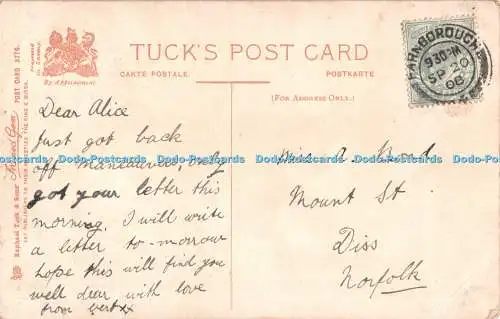 TUCK'S POST CARD
CARTE POSTALE. POSTKARTE
(FOR ADDRESS ONLY.)
BY APPOINTMENT
POST CARD 9776.
Raphael Tuck & Sons'
FARNBOROUGH
9 30 PM
SP 20
08
Dear Alice
Just got back
off Maneuvres, only
got your letter this
morning. I will write
a letter to-morrow
hope this will find you
well dear with love
from bert xx
Miss A. Nood
Mount St
Diss
Norfolk
Dodo Postcards Dodo Postcards Dodo Postcards Dodo Postcards Dodo Postcards